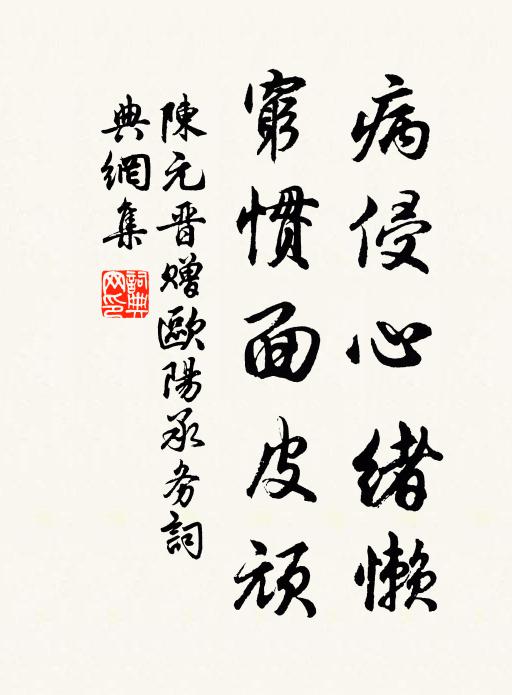 病侵心緒懶
窮慣面皮頑
陳元晋贈歐陽承务詞
典網集
詞典
网印